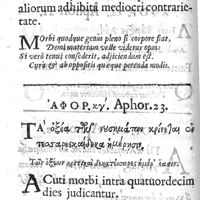 aliorum adhibita mediocri contrarie-
tate.
MOrbi quodque genus pleno si corpore fiat,
Demi materiam velle videtur opus:
Si vero tenui consederit, adjiciendum est.
Cura & ab oppositis quæque petenda modis.
ΑΦΟΡ. κγ. Aphor. 23.
ΤΑ ὀξέα τῶν νοσημάτων κρίνεται ἐν
τεσσαρεσκαίδεκα ἡμέρῃσιν.
Τῶν ὀξέων κριτικαὶ
ACuti morbi intra quatuordecim
dies judicantur.